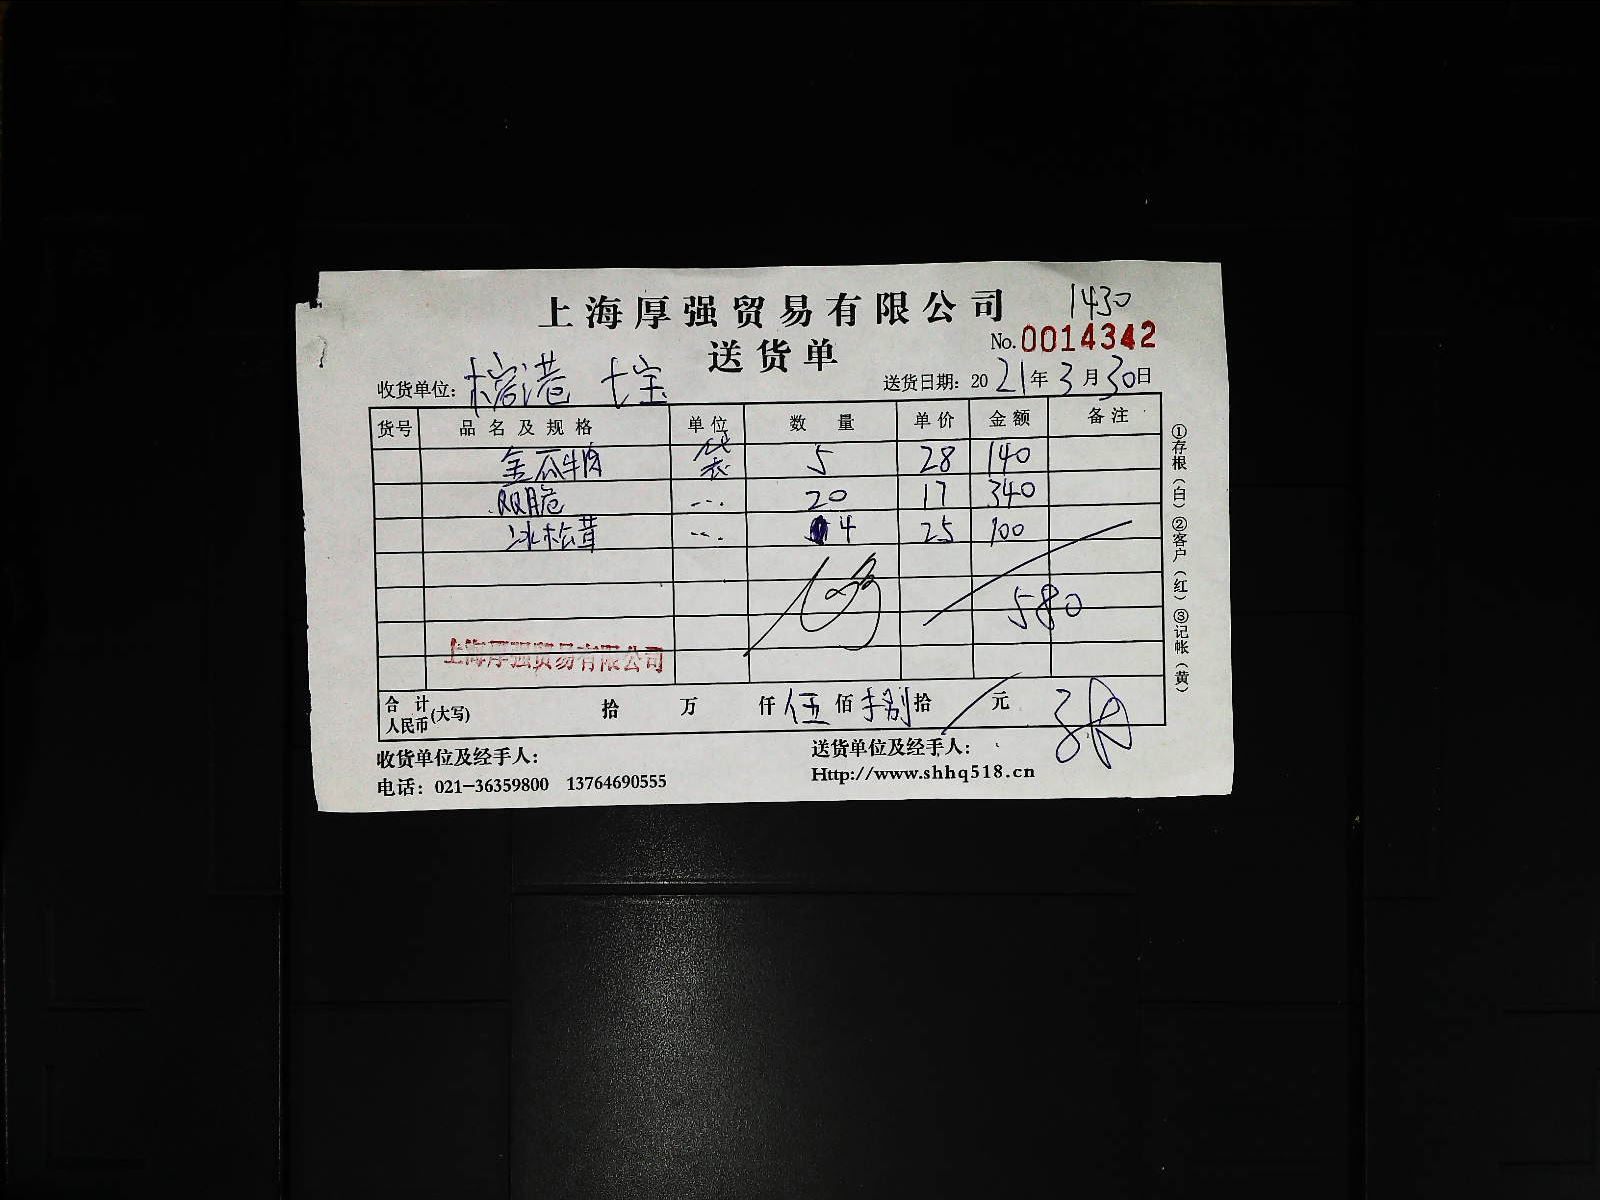 上海厚强贸易有限公司 1430
送货单 No.0014342
收货单位：榕港 七宝 送货日期：2021年3月30日
货号 品名及规格 单位 数量 单价 金额 备注
金瓜牛肉 袋 5 28 140
双脆 --. 20 17 340
冰松茸 --. 4 25 100
580
上海厚强贸易有限公司
合计人民币(大写) 拾 万 仟 伍 佰 捌 拾 元
收货单位及经手人： 送货单位及经手人：
电话：021-36359800 13764690555 Http://www.shhq518.cn
①存根（白）②客户（红）③记帐（黄）